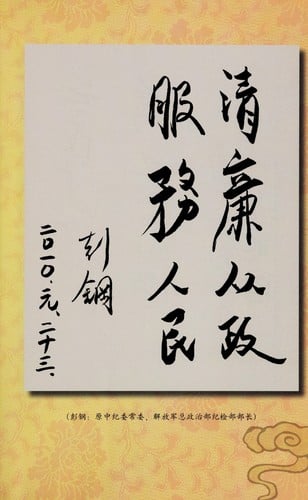 清廉从政
服務人民
彭鋼
二〇一〇.元.二十三.
(彭钢：原中纪委常委、解放军总政治部纪检部部长)